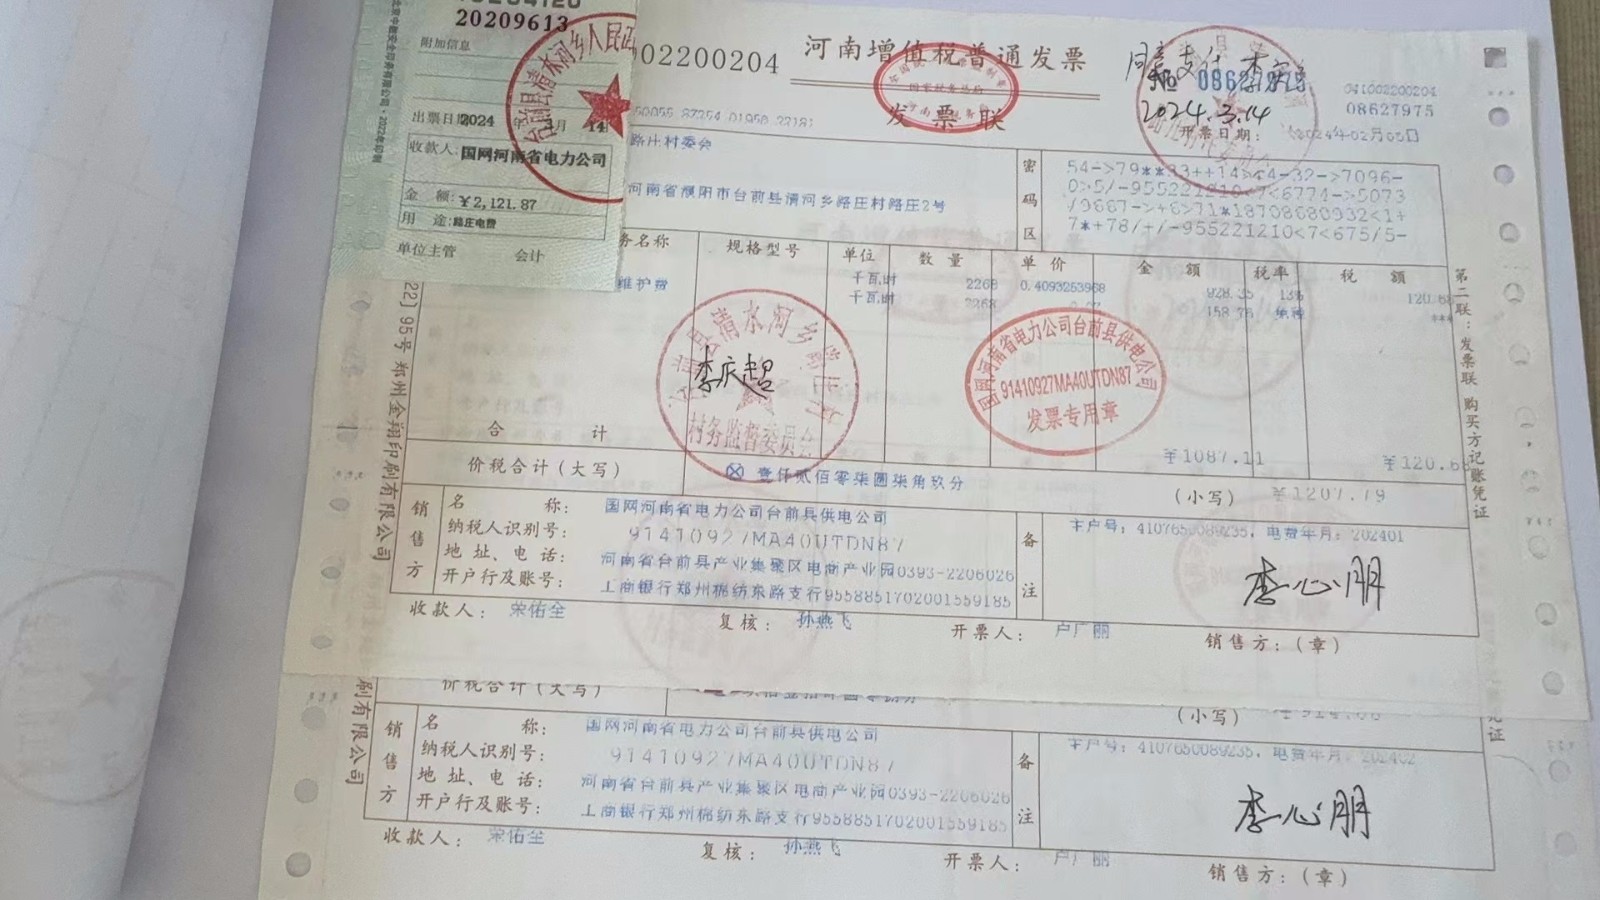 20209613
附加信息
出票日期 2024 年 3月 14
收款人: 国网河南省电力公司
金 额: ￥2,121.87
用 途: 路庄电费
单位主管 会计
台前县清水河乡人民
002200204
河南增值税普通发票
发 票 联
同意支付
2024.3.14
041002200204
08627975
开票日期: 2024年02月
路庄村委会
河南省濮阳市台前县清河乡路庄村路庄2号
密
码
区
0>5/-955221210<7<6774->5073
7*+78/+/-955221210<7<675/5-
务名称 规格型号 单位 数 量 单 价 金 额 税率 税 额
千瓦时 2268 0.4093253968 928.35 13%
维护费 千瓦时 2268 158.76
清水河乡
李庆超
村务监督委员会
国网河南省电力公司台前县供电公司
91410927MA40UTDN87
发票专用章
合 计 ￥1087.11 ￥120.68
价税合计(大写) ⊗ 壹仟贰佰零柒圆柒角玖分 (小写) ￥1207.79
销售方
名 称: 国网河南省电力公司台前县供电公司
纳税人识别号: 91410927MA40UTDN87
地 址、电 话: 河南省台前县产业集聚区电商产业园0393-2206026
开户行及账号: 工商银行郑州棉纺东路支行9558851702001559185
备注
主户号: 4107650089235, 电费年月: 202401
李心朋
收款人: 荣佑全 复核: 孙燕飞 开票人: 卢广丽 销售方:(章)
第二联:发票联 购买方记账凭证
22]95号 郑州金翔印刷有限公司
价税合计(大写) (小写)
销售方
名 称: 国网河南省电力公司台前县供电公司
纳税人识别号: 91410927MA40UTDN87
地 址、电 话: 河南省台前县产业集聚区电商产业园0393-2206026
开户行及账号: 工商银行郑州棉纺东路支行9558851702001559185
备注
主户号: 4107650089235, 电费年月: 202402
李心朋
收款人: 荣佑全 复核: 孙燕飞 开票人: 卢广丽 销售方:(章)
刷有限公司